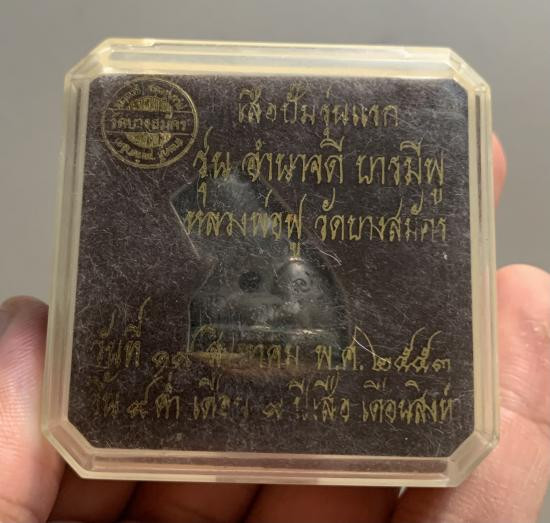 วัดบางสมัคร
เสือปั๊มรุ่นแรก
รุ่น อำนาจดี บารมีฟู
หลวงพ่อฟู วัดบางสมัคร
วันที่ ๑๘ สิงหาคม พ.ศ.๒๕๕๓
วัน ๙ ค่ำ เดือน ๙ ปีเสือ เดือนสิงห์